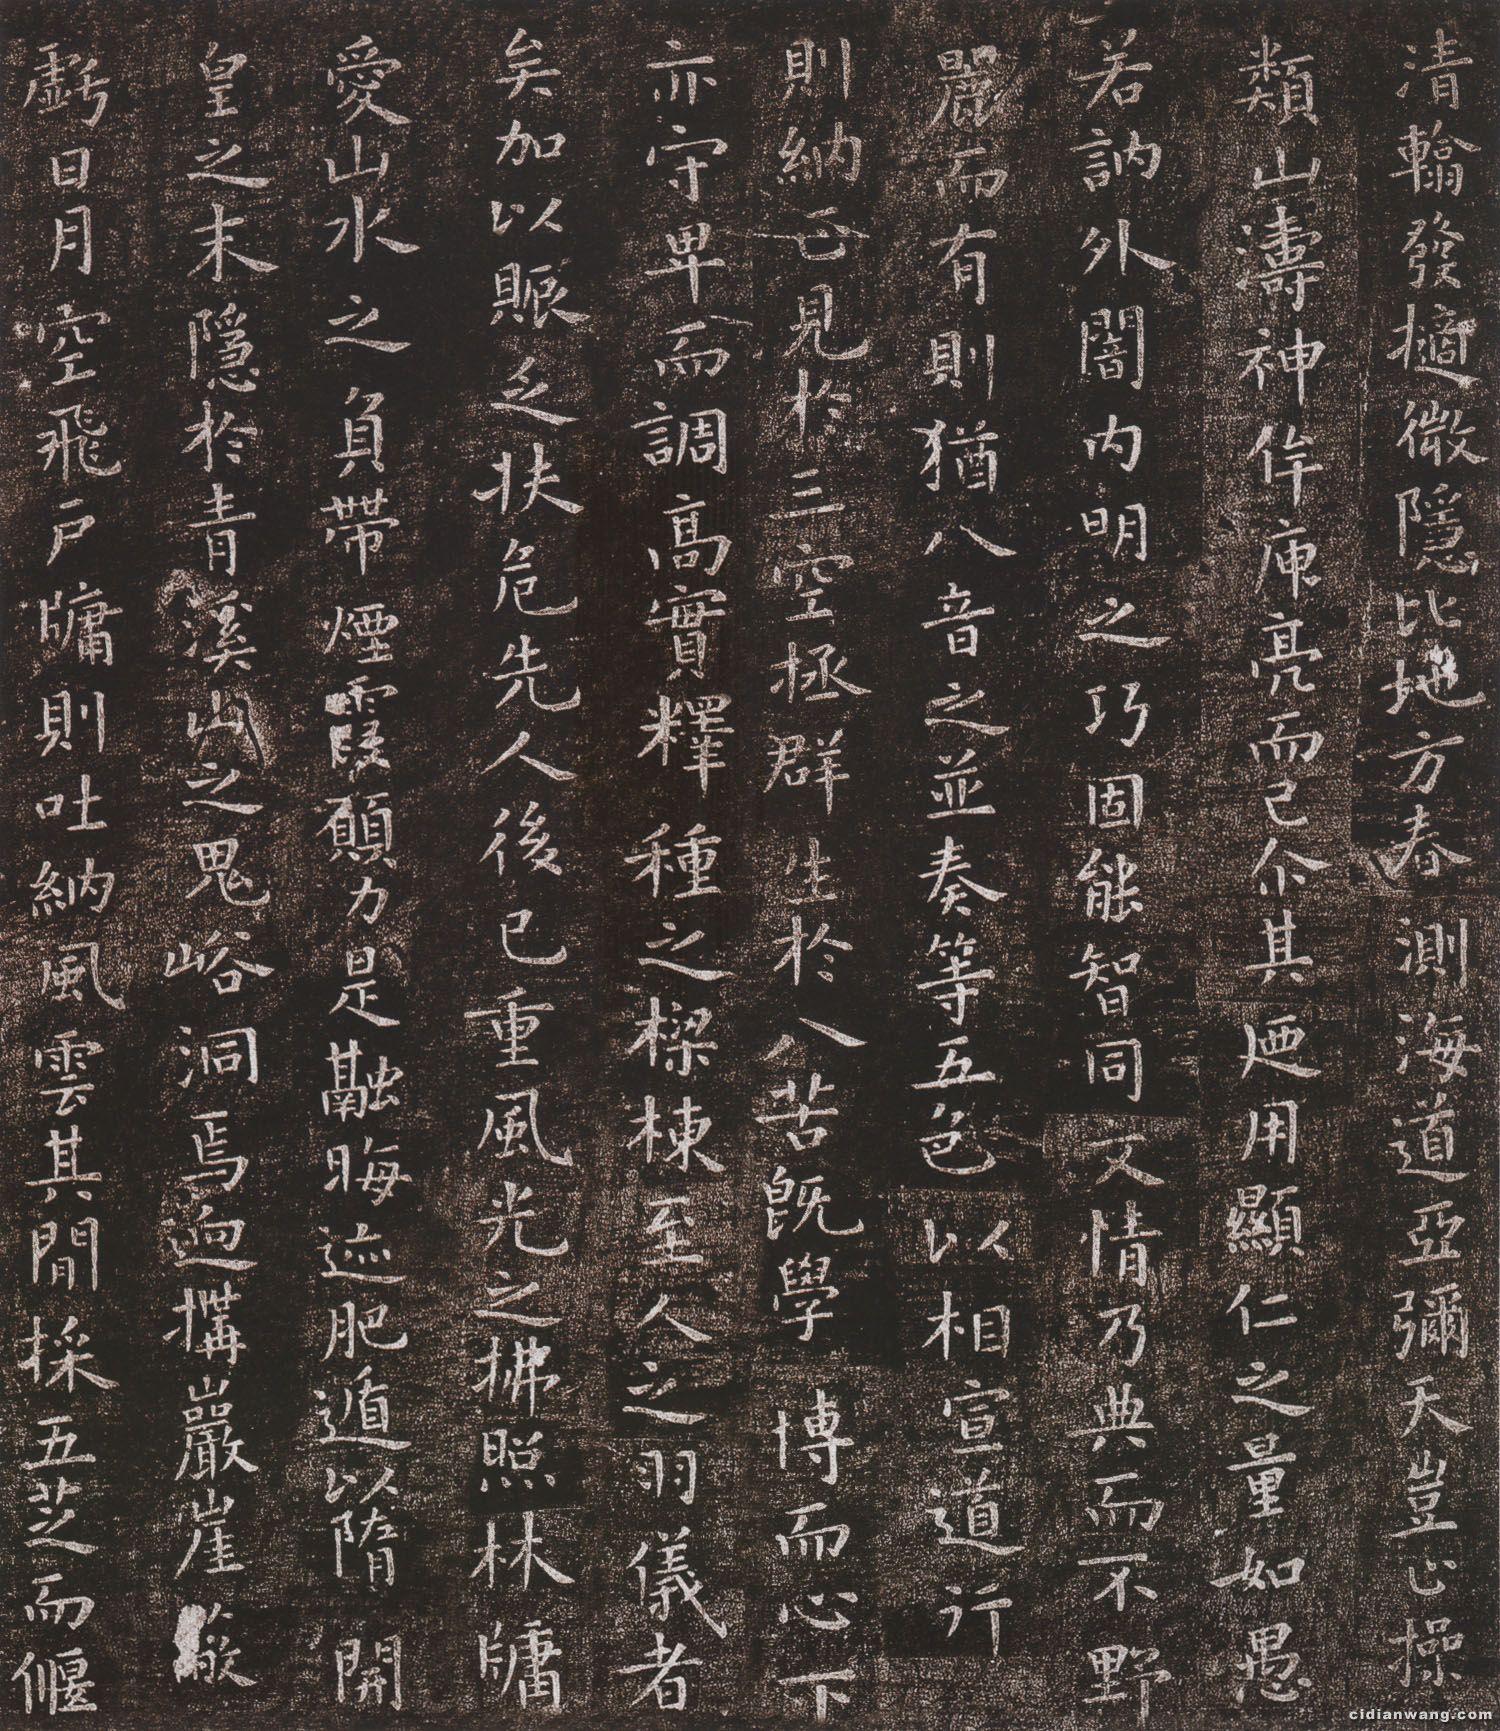 清翰發擿微隱比地方春測海道亞彌天豈止操
類山濤神侔庾亮而已介其迺用顯仁之量如愚
若訥外闇內明之巧固能智同文情乃典而不野
麗而有則猶八音之並奏等五色以相宣道行
則納正見於三空拯群生於八苦旣學博而心下
亦守卑而調高實釋種之樑棟至人之羽儀者
矣加以賑乏扶危先人後已重風光之拂照林牖
愛山水之負帶煙霞願力是融晦迹肥遁以隋開
皇之末隱於青溪山之鬼峪洞焉迥搆巖崖
虧日月空飛戶牖則吐納風雲其閒採五芝而偃
cidianwang.com